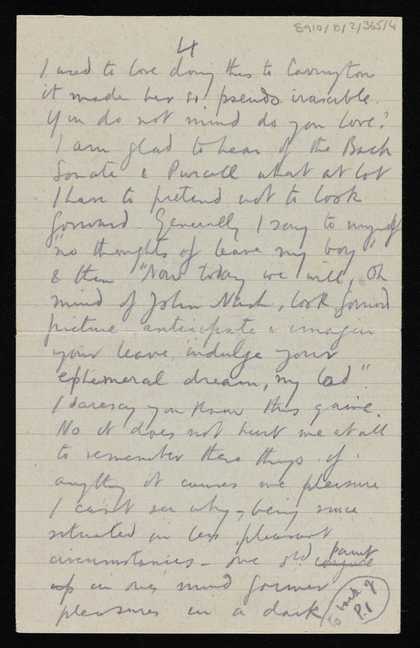 8910/10/2/365/4
4
I used to love doing this to Carrington
it made her so pseudo irascible.
You do not mind do you love?
I am glad to hear of the Bach
Sonata & Purcell what a lot
I have to pretend not to look
forward Generally I say to myself
"no thoughts of leave my boy"
& then "Now today we will, Oh
mind of John Nash, look forward
picture anticipate & imagin
your leave, indulge your
ephemeral dream, my lad".
I daresay you know this game.
No it does not hurt me at all
to remember these things if
anything it causes me pleasure
I can't see why, being since
situated in less pleasant
circumstances – one sh<sup></sup>d paint
up in ones mind former
pleasures in a dark
to back of
P.1